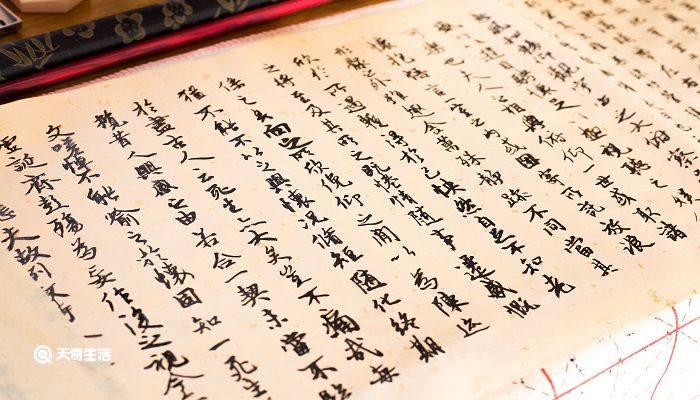 風和暢仰觀宇宙之大俯察
遊目騁懷足以極視
可樂也夫人之相與俯仰一世或取諸
懷抱悟言一室之內或因寄所託放浪
形骸之外雖趣舍萬殊靜躁不同當其
欣於所遇暫得於己快然自足不知老
之將至及其所之既惓情隨事遷感慨
係之矣向之所欣俛仰之間以為陳迹
猶不能不以之興懷況脩短隨化終期
於盡古人云死生亦大矣豈不痛哉每
攬昔人興感之由若合一契未嘗不臨
文嗟悼不能喻之於懷固知一死生
虛誕齊彭殤為妄作後之視今
悲夫故列敘時
天奇生活